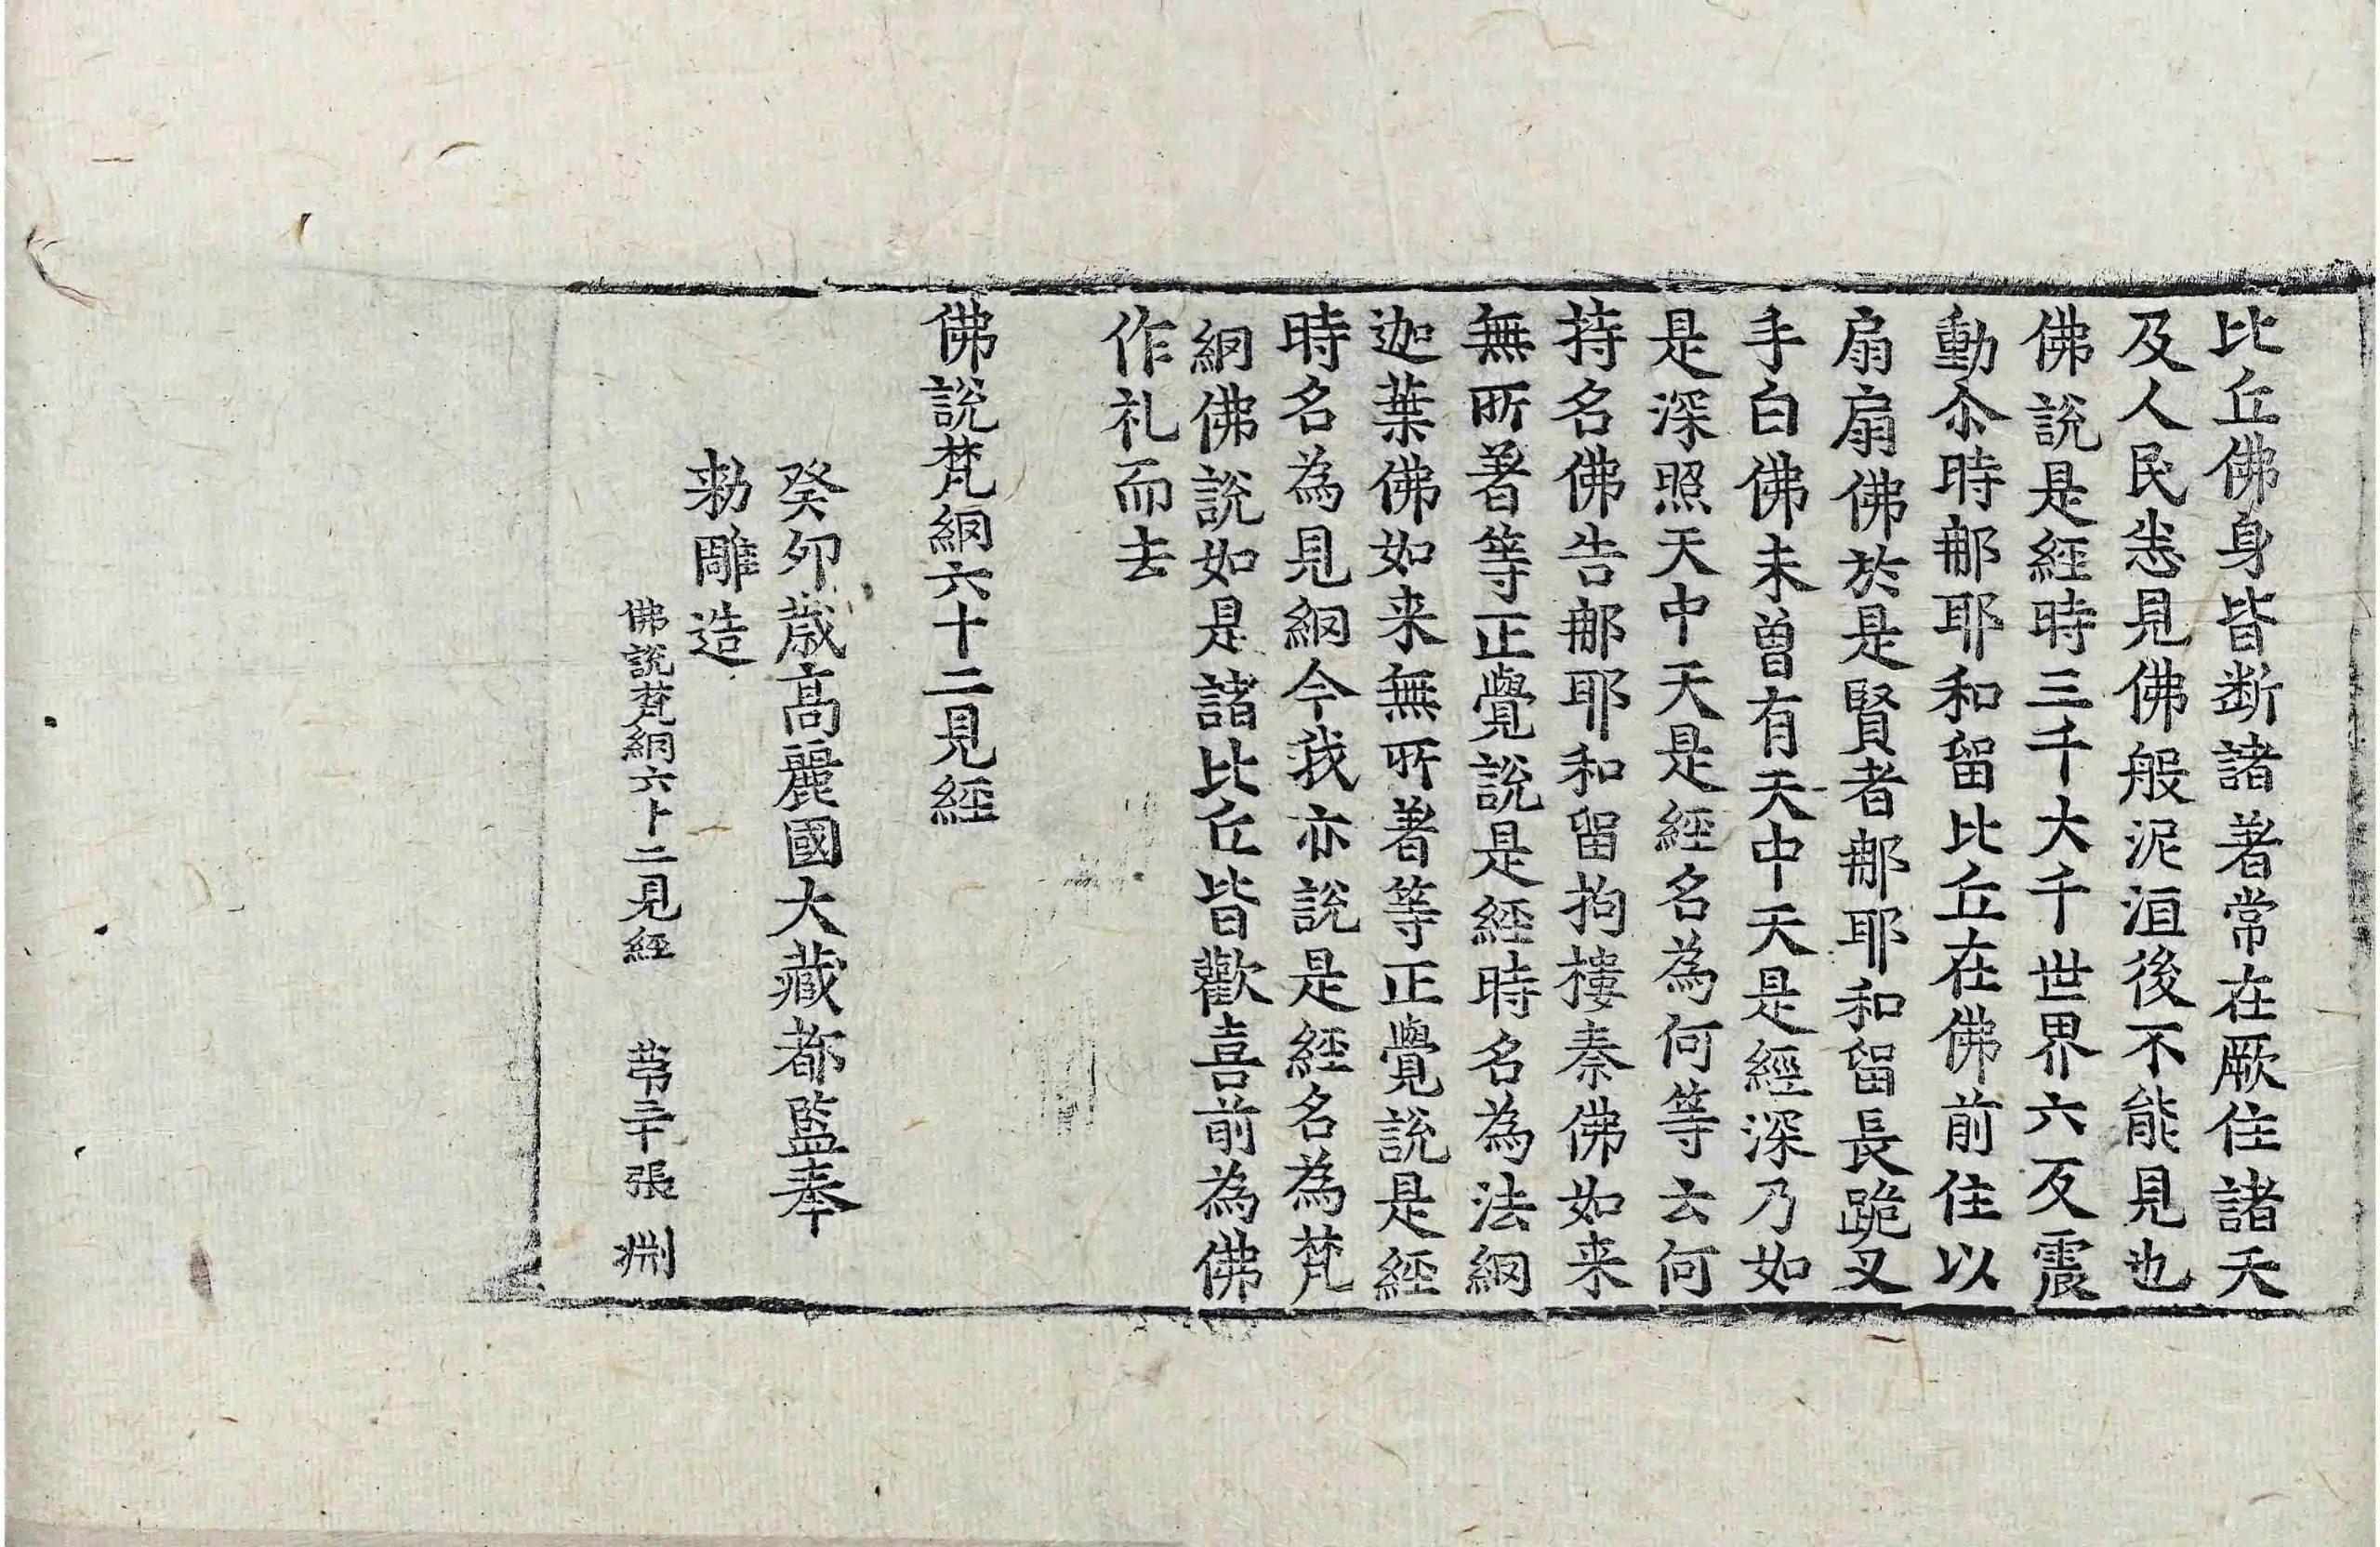 比丘佛身皆断諸著常在厥住諸天
及人民悉見佛般泥洹後不能見也
佛說是經時三千大千世界六反震
動尒時那耶和留比丘在佛前住以
扇扇佛於是賢者那耶和留長跪叉
手白佛未曽有天中天是經深乃如
是深照天中天是經名為何等云何
持名佛告那耶和留拘樓秦佛如来
無所著等正覺說是經時名為法網
迦葉佛如来無所著等正覺說是經
時名為見網今我亦說是經名為梵
網佛說如是諸比丘皆歡喜前為佛
作礼而去
佛說梵網六十二見經
癸卯歲高麗國大藏都監奉
勑雕造
佛說梵網六十二見經 苐三十張 淵